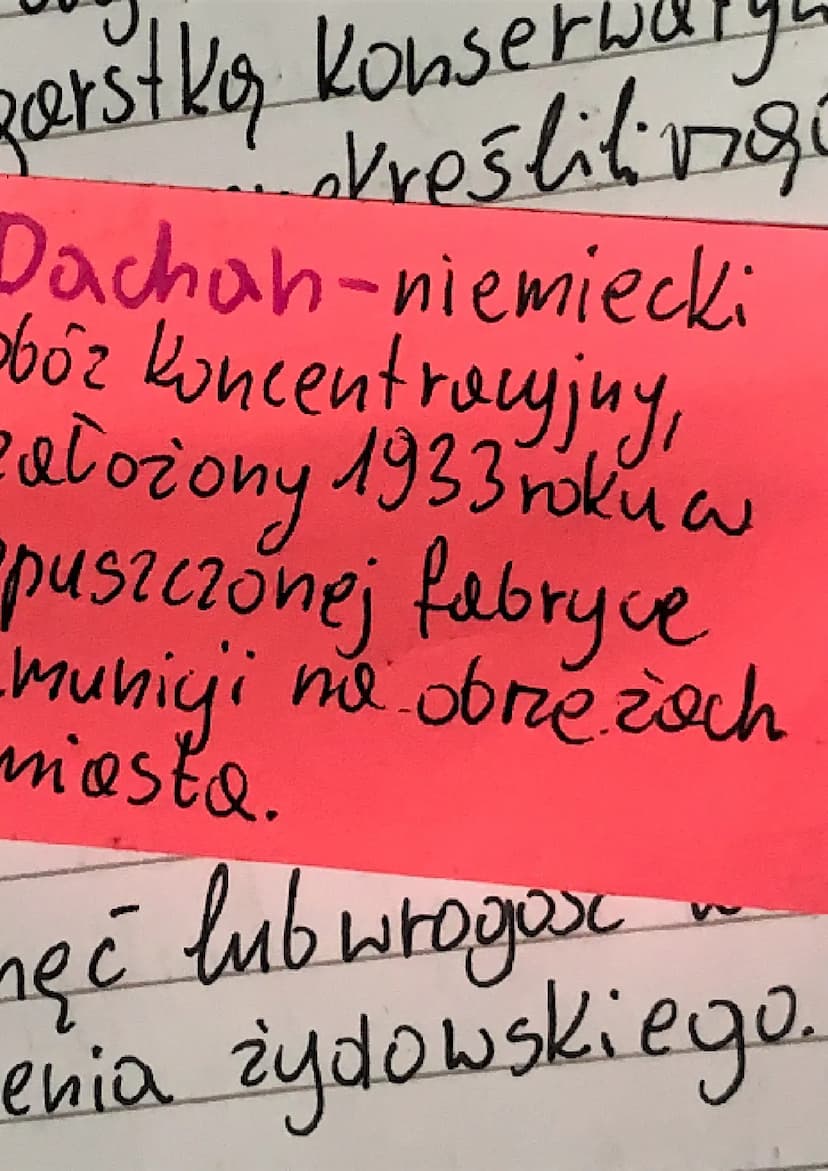 garstką konserwatyw
określili mg
Dachau - niemiecki
obóz koncentracyjny,
założony 1933 roku w
opuszczonej fabryce
amunicji na obrzeżach
miasta.
lub wrogość w
enia żydowskiego.